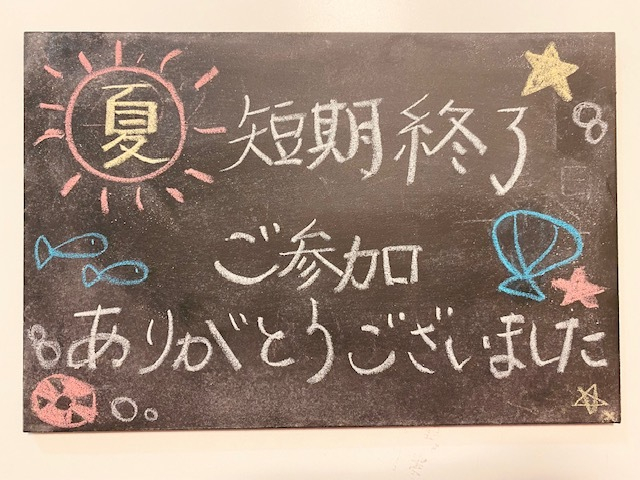 夏 短期終了
ご参加
ありがとうございました